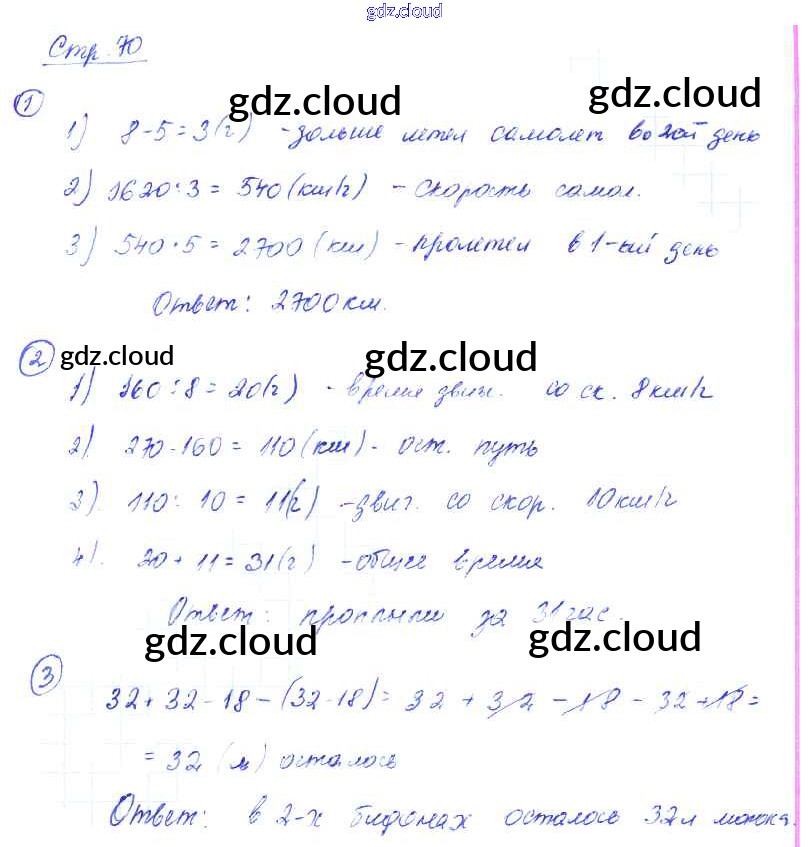 gdz.cloud
Стр. 70
gdz.cloud gdz.cloud
① 1) 8-5=3(г) -дольше летел самолет во 2ой день
2) 1620:3 = 540 (км/г) - скорость самол.
3) 540·5 = 2700 (км) - пролетел в 1-ый день
Ответ: 2700 км.
② gdz.cloud gdz.cloud
1) 160:8 = 20(г) - время движ. со ск. 8 км/г
2). 270-160 = 110 (км) - ост. путь
3). 110: 10 = 11(г) -двиг. со скор. 10 км/г
4). 20+11=31(г) -общее время
Ответ: проплыли за 31 час.
gdz.cloud gdz.cloud
③ 32+32-18-(32-18)= 32+32-18-32+18=
= 32 (л) осталось
Ответ: в 2-х бидонах осталось 32л молока.